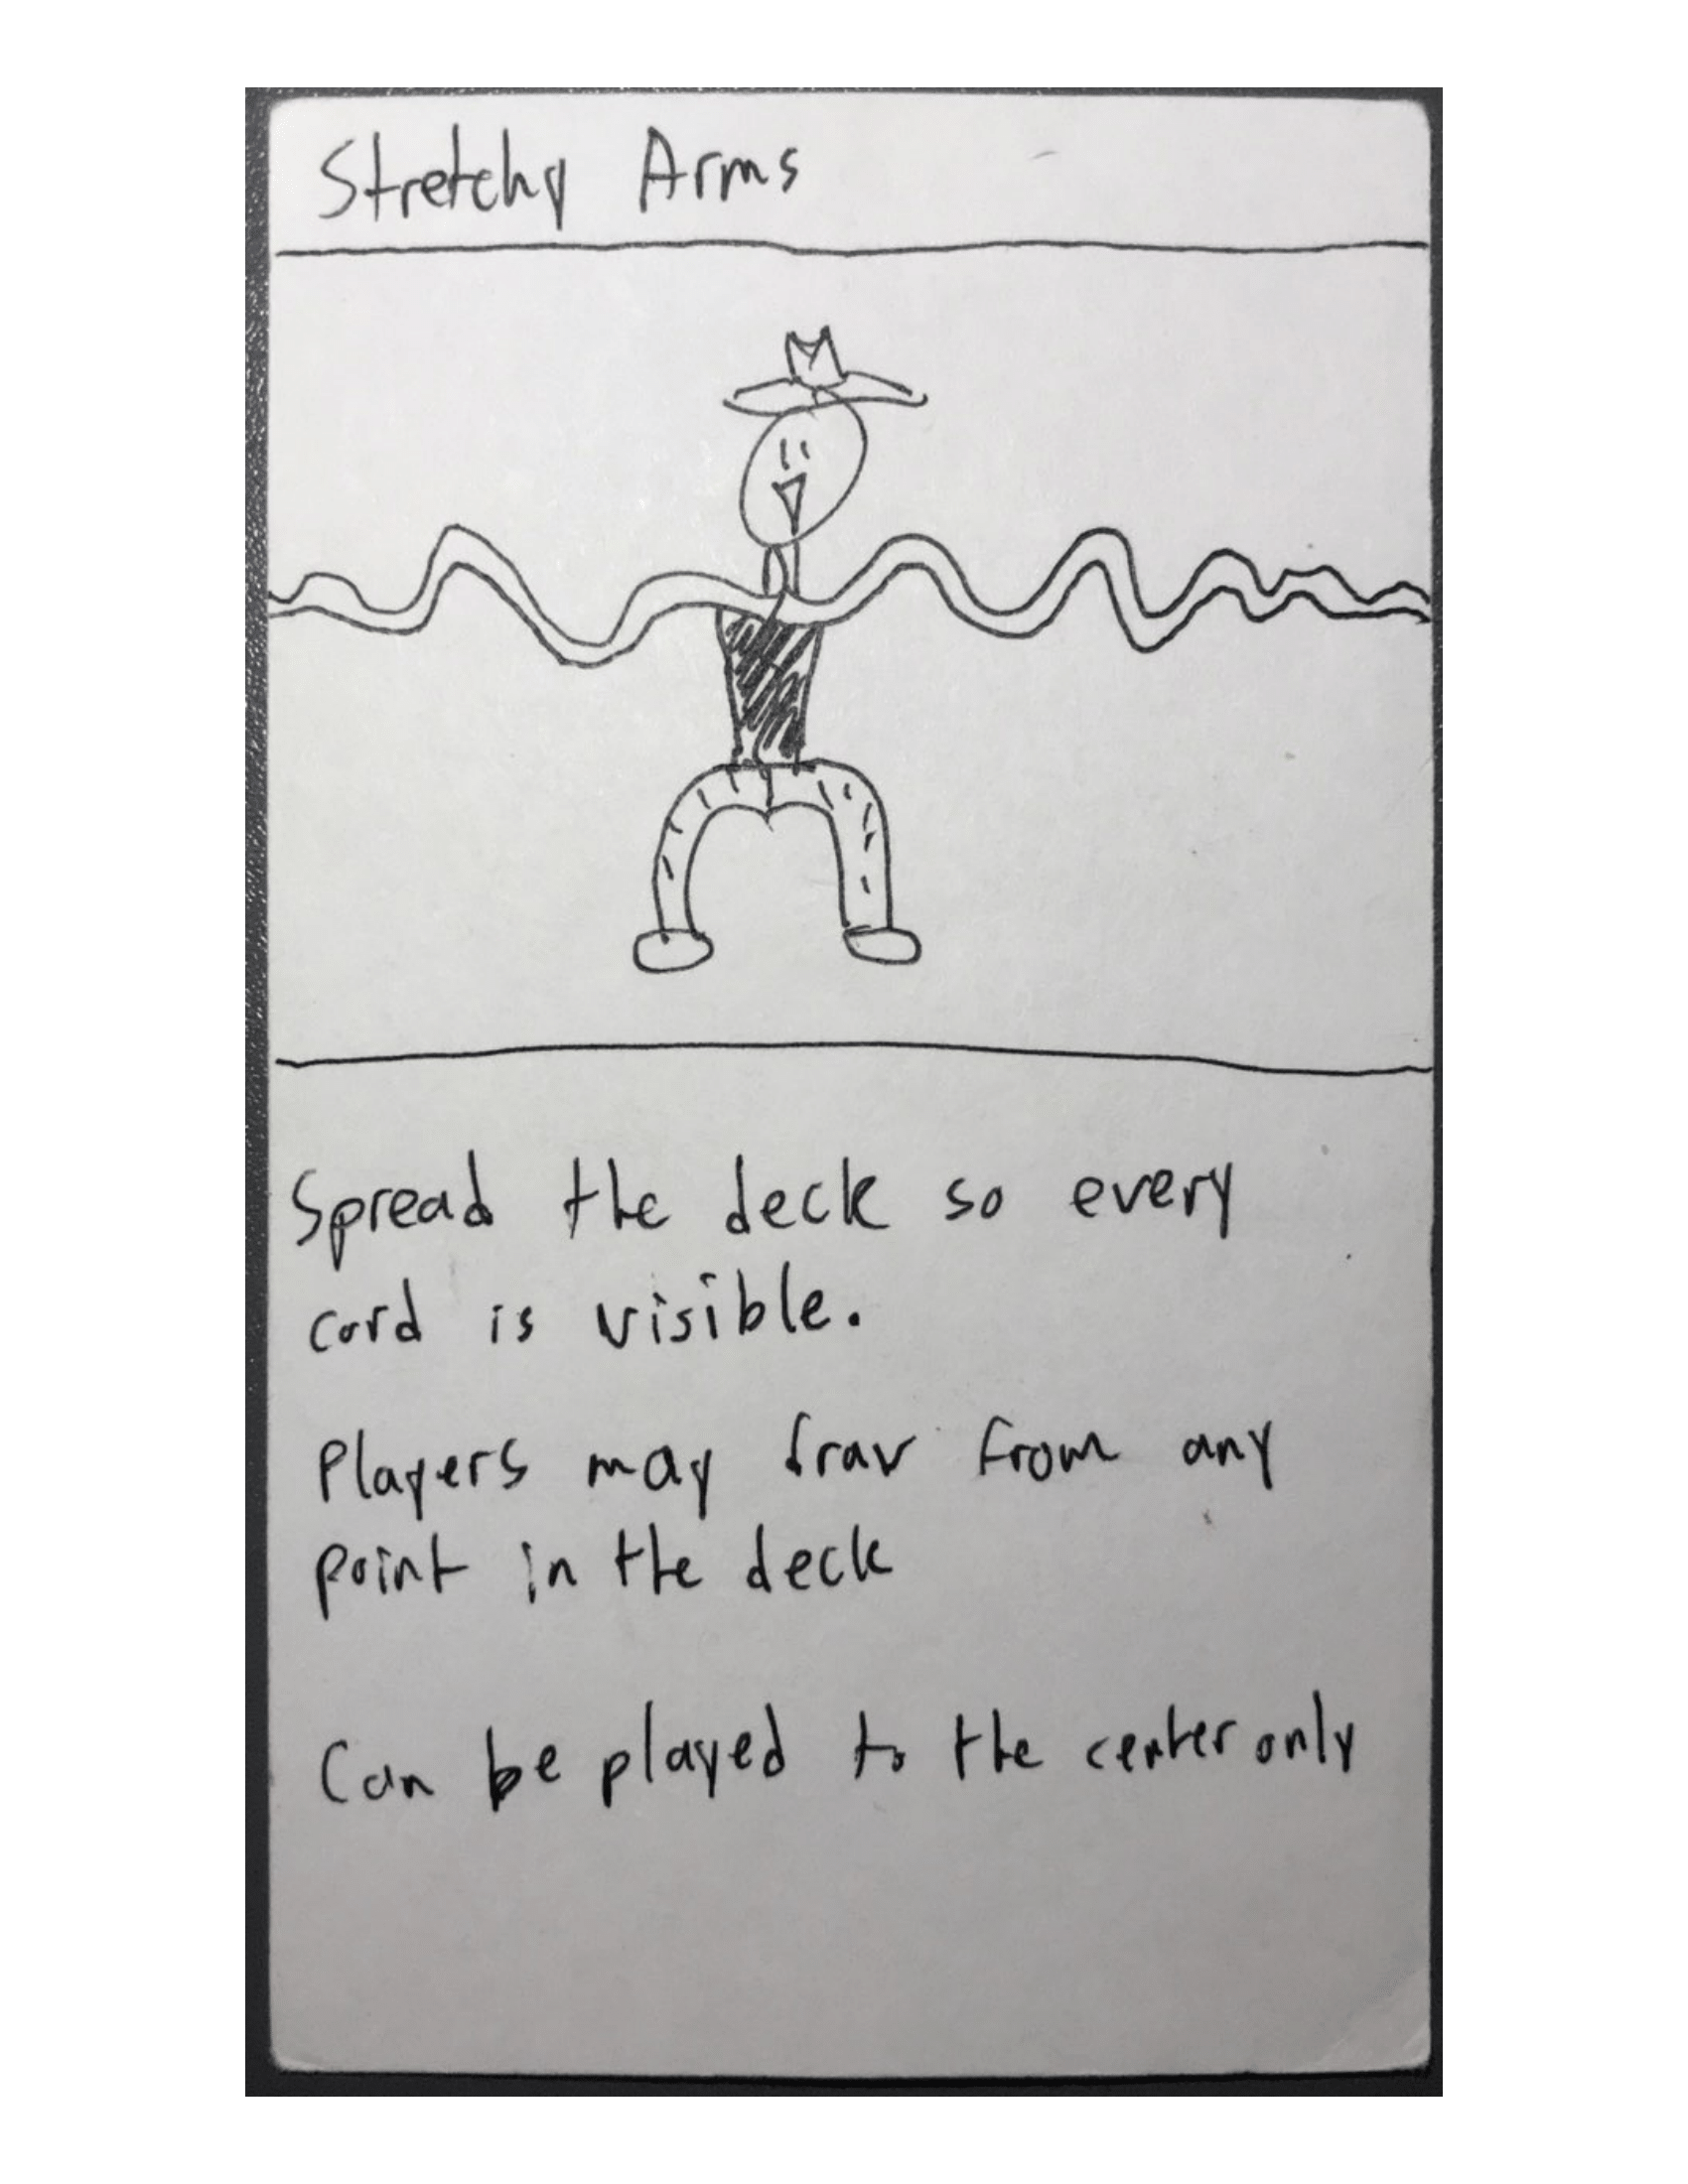 Stretchy Arms
Spread the deck so every
card is visible.
Players may draw from any
point in the deck
Can be played to the center only